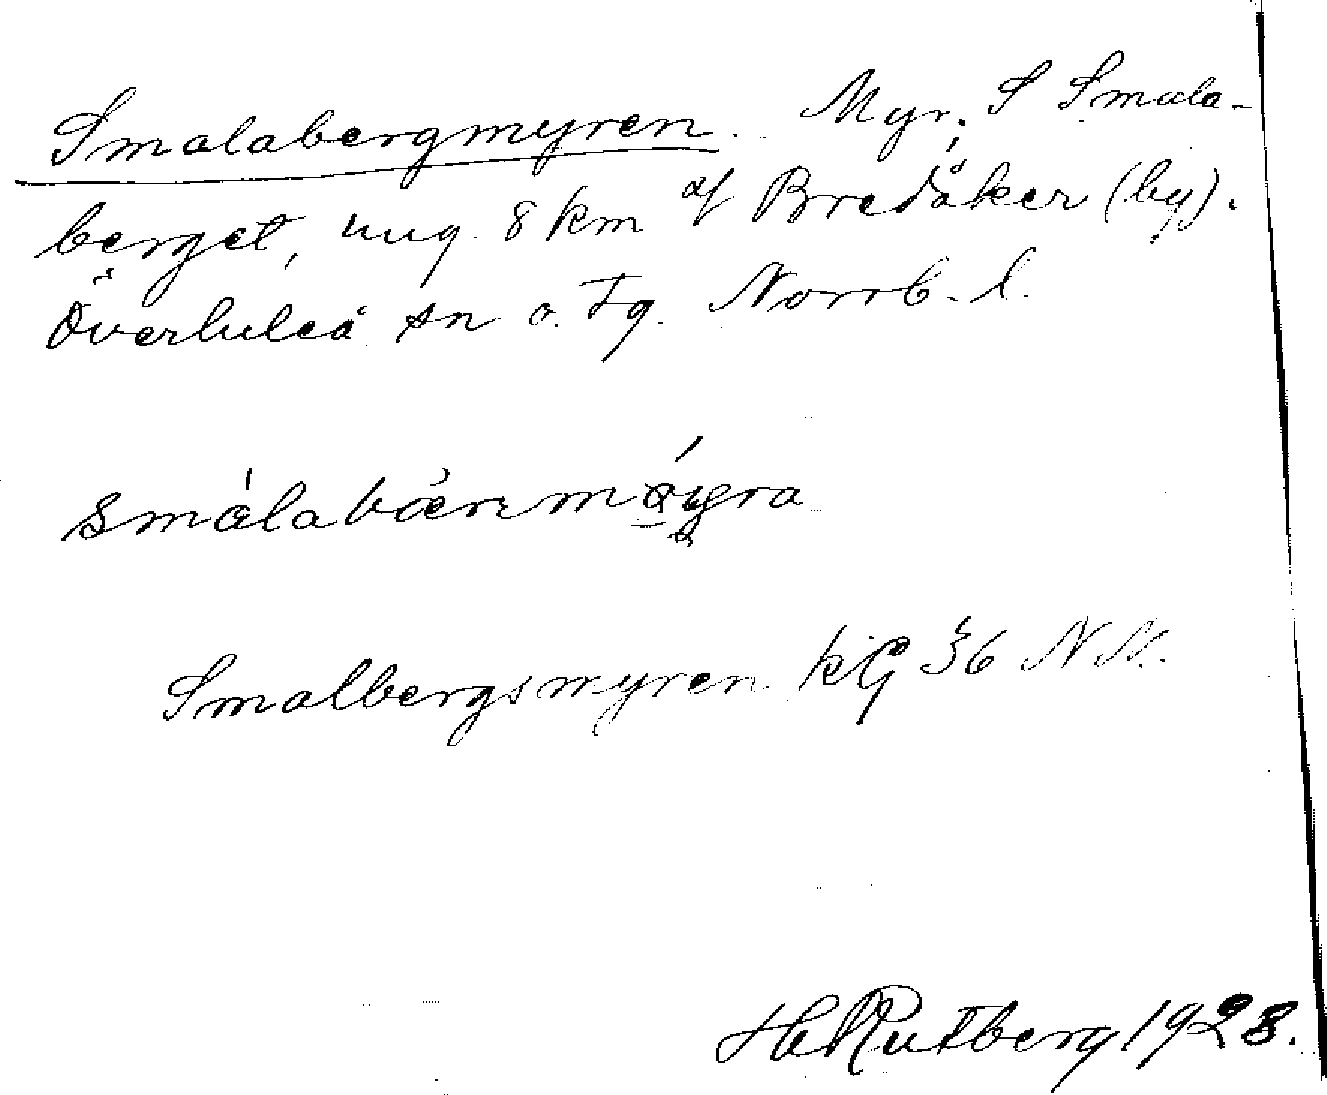 Smalabergmyren. Myr, S Smala-
berget, ung. 8 km af Bredåker (by).
Överluleå sn o. tg. Norrb. l.
smálabärmyra
Smalbergsmyren kG 36 NV.
H. Rutberg 1928.